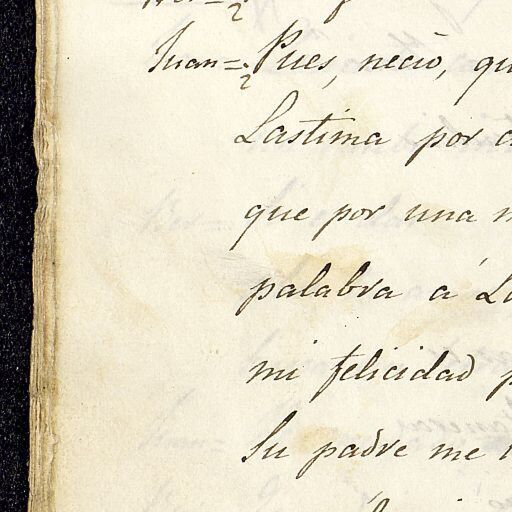 Juan = ¿Pues, necio, qu
Lastima por
que por una
palabra a
mi felicidad p
Su padre me